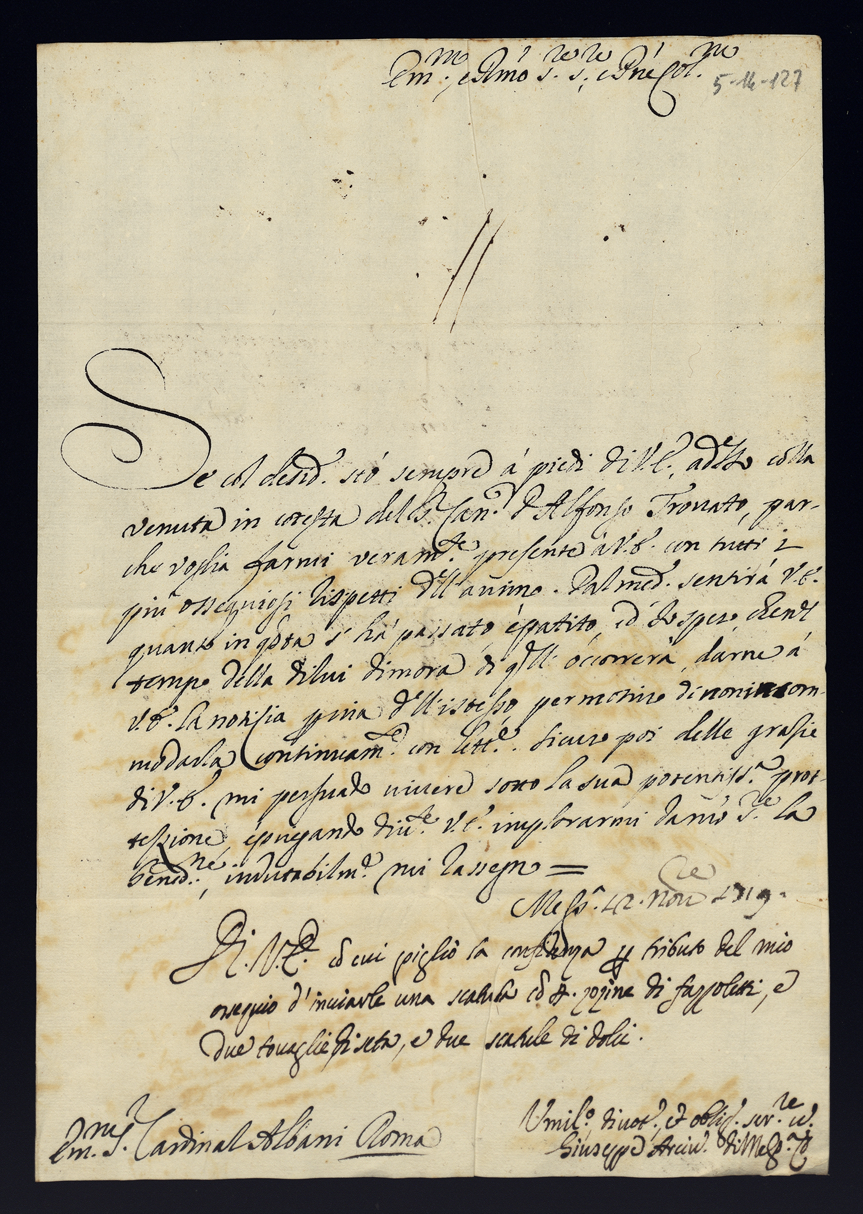 Em.mo, e Rmo S.re S.re, e Pne Col.mo
5-14-127
Se col desid.o stò sempre à piedi di V.E., adesso colla
venuta in cotesta del S.r Can.co D. Alfonso Trovato, par-
che voglia farmi veram.te presente à V.E. con tutti i
più ossequiosi rispetti dell'animo. Dal med.o sentirà V.E.
quanto in qsta s'hà passato, è patito, ed
tempo della di lui dimora di qlli occorrerà, darne à
V.E. la notizia pria dell'istesso, per motivo di non incom-
modarla continuam.te con lett.e. Sicuro poi delle grazie
di V.E. mi persuado vivere sotto la sua potentiss.a prot-
tezione, e pregando V.E. implorarmi da nro S.re la
bened.ne, indubitabilm.te mi rassegno =
Mess.a 12. Nov.re 1719.
Di V.E. cd cui piglio la confidanza p tributo del mio
ossequio d'inviarle una scatula cd 4. zozine di fazzoletti, e
due tovaglie di seta, e due scatule di dolci.
Em.mo S.r Cardinal Albani Roma
Umil.o divot.o, et oblig.o ser.re v.
Giuseppe Arciv.o di Mess.a